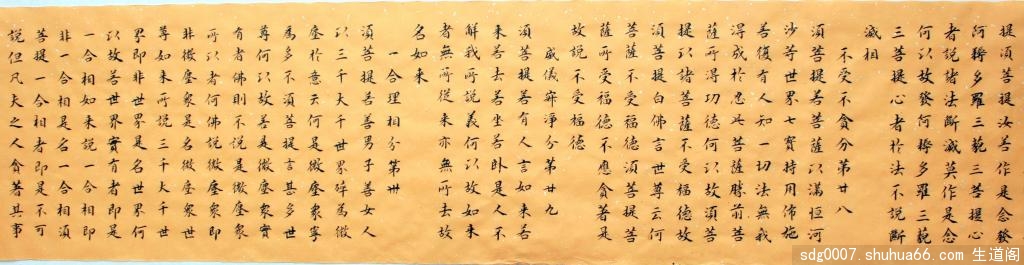 提須菩提汝若作是念發
阿耨多羅三藐三菩提心
者說諸法斷滅莫作是念
何以故發何耨多羅三藐
三菩提心者於法不說斷
滅相
不受不貪分第廿八
須菩提若菩薩以滿恒河
沙等世界七寶持用佈施
若復有人知一切法無我
得成於忍此菩薩勝前菩
薩所得功德何以故須菩
提以諸菩薩不受福德故
須菩提白佛言世尊云何
菩薩不受福德須菩提菩
薩所受福德不應貪著是
故說不受福德
威儀寂淨分第廿九
須菩提若有人言如來若
來若去若坐若臥是人不
解我所說義何以故如來
者無所從來亦無所去故
名如來
一合理相分第卅
須菩提若善男子善女人
以三千大千世界碎為微
塵於意云何是微塵眾寧
為多不須菩提言甚多世
尊何以故若是微塵眾實
有者佛則不說是微塵眾
所以者何佛說微塵眾即
非微塵眾是名微塵眾世
尊如來所說三千大千世
界即非世界是名世界何
以故若世界實有者即是
一合相如來說一合相即
非一合相是名一合相須
菩提一合相者即是不可
說但凡夫之人貪著其事
sdg0007.shuhua66.com 生道阁